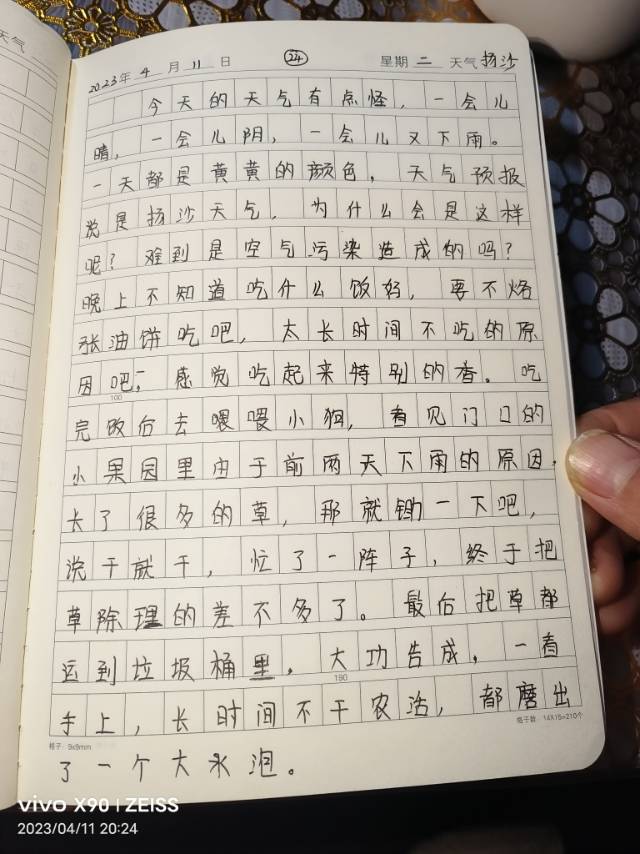 天气
2023年 4 月 11 日 24 星期 二 天气 扬沙
今天的天气有点怪，一会儿
晴，一会儿阴，一会儿又下雨。
一天都是黄黄的颜色，天气预报
说是扬沙天气，为什么会是这样
呢？难到是空气污染造成的吗？
晚上不知道吃什么饭好，要不烙
张油饼吃吧，太长时间不吃的原
因吧，感觉吃起来特别的香。吃
100
完饭后去喂喂小狗，看见门口的
小果园里由于前两天下雨的原因，
长了很多的草，那就锄一下吧，
说干就干，忙了一阵子，终于把
草除理的差不多了。最后把草都
运到垃圾桶里，大功告成，一看
190
手上，长时间不干农活，都磨出
格子：9x9mm 格子数 14X15=210个
了一个大水泡。
vivo X90 | ZEISS
2023/04/11 20:24